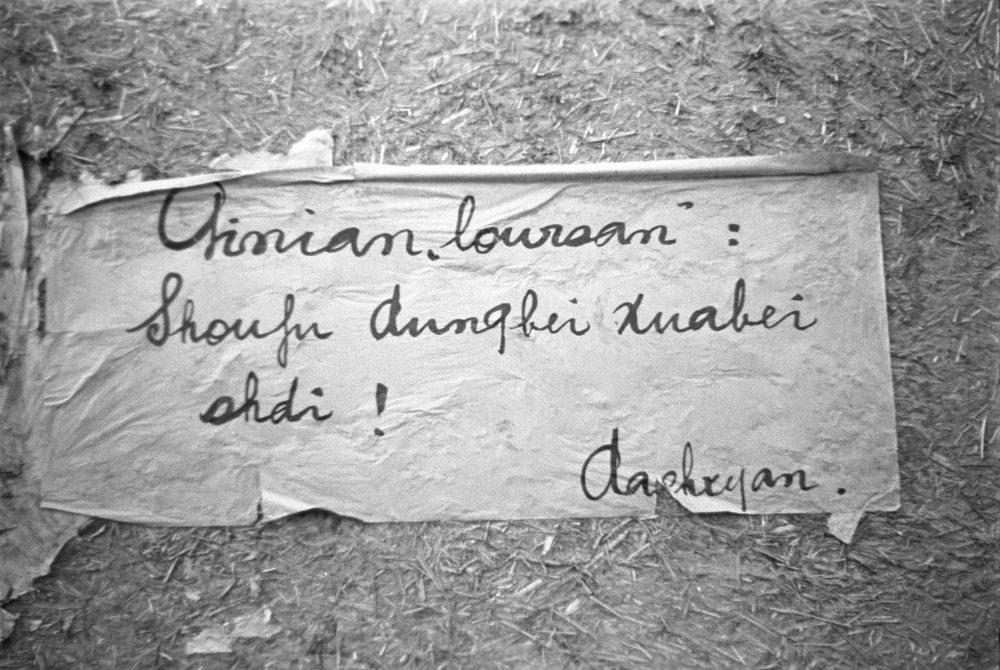 Ginian „loursan” :
Shoufu dungbei xuabei
shdi !
Dashxyan .